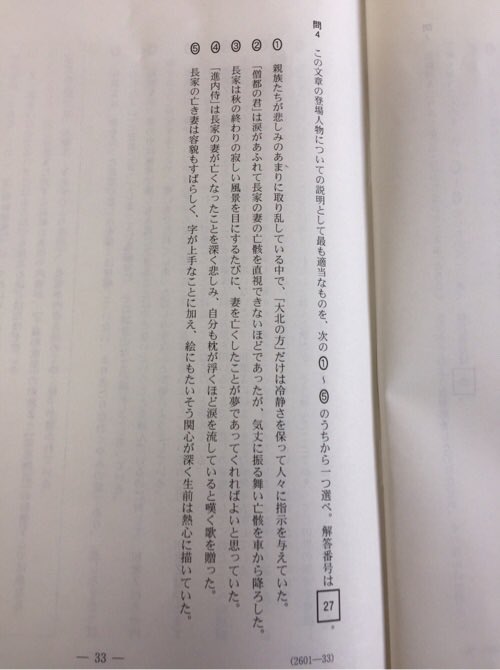 問4 この文章の登場人物についての説明として最も適当なものを、次の①～⑤のうちから一つ選べ。解答番号は 27 。
① 親族たちが悲しみのあまりに取り乱している中で、「大北の方」だけは冷静さを保って人々に指示を与えていた。
② 「僧都の君」は涙があふれて長家の妻の亡骸を直視できないほどであったが、気丈に振る舞い亡骸を車から降ろした。
③ 長家は秋の終わりの寂しい風景を目にするたびに、妻を亡くしたことが夢であってくれればよいと思っていた。
④ 「進内侍」は長家の妻が亡くなったことを深く悲しみ、自分も枕が浮くほど涙を流していると嘆く歌を贈った。
⑤ 長家の亡き妻は容貌もすばらしく、字が上手なことに加え、絵にもたいそう関心が深く生前は熱心に描いていた。
— 33 —
(2601—33)